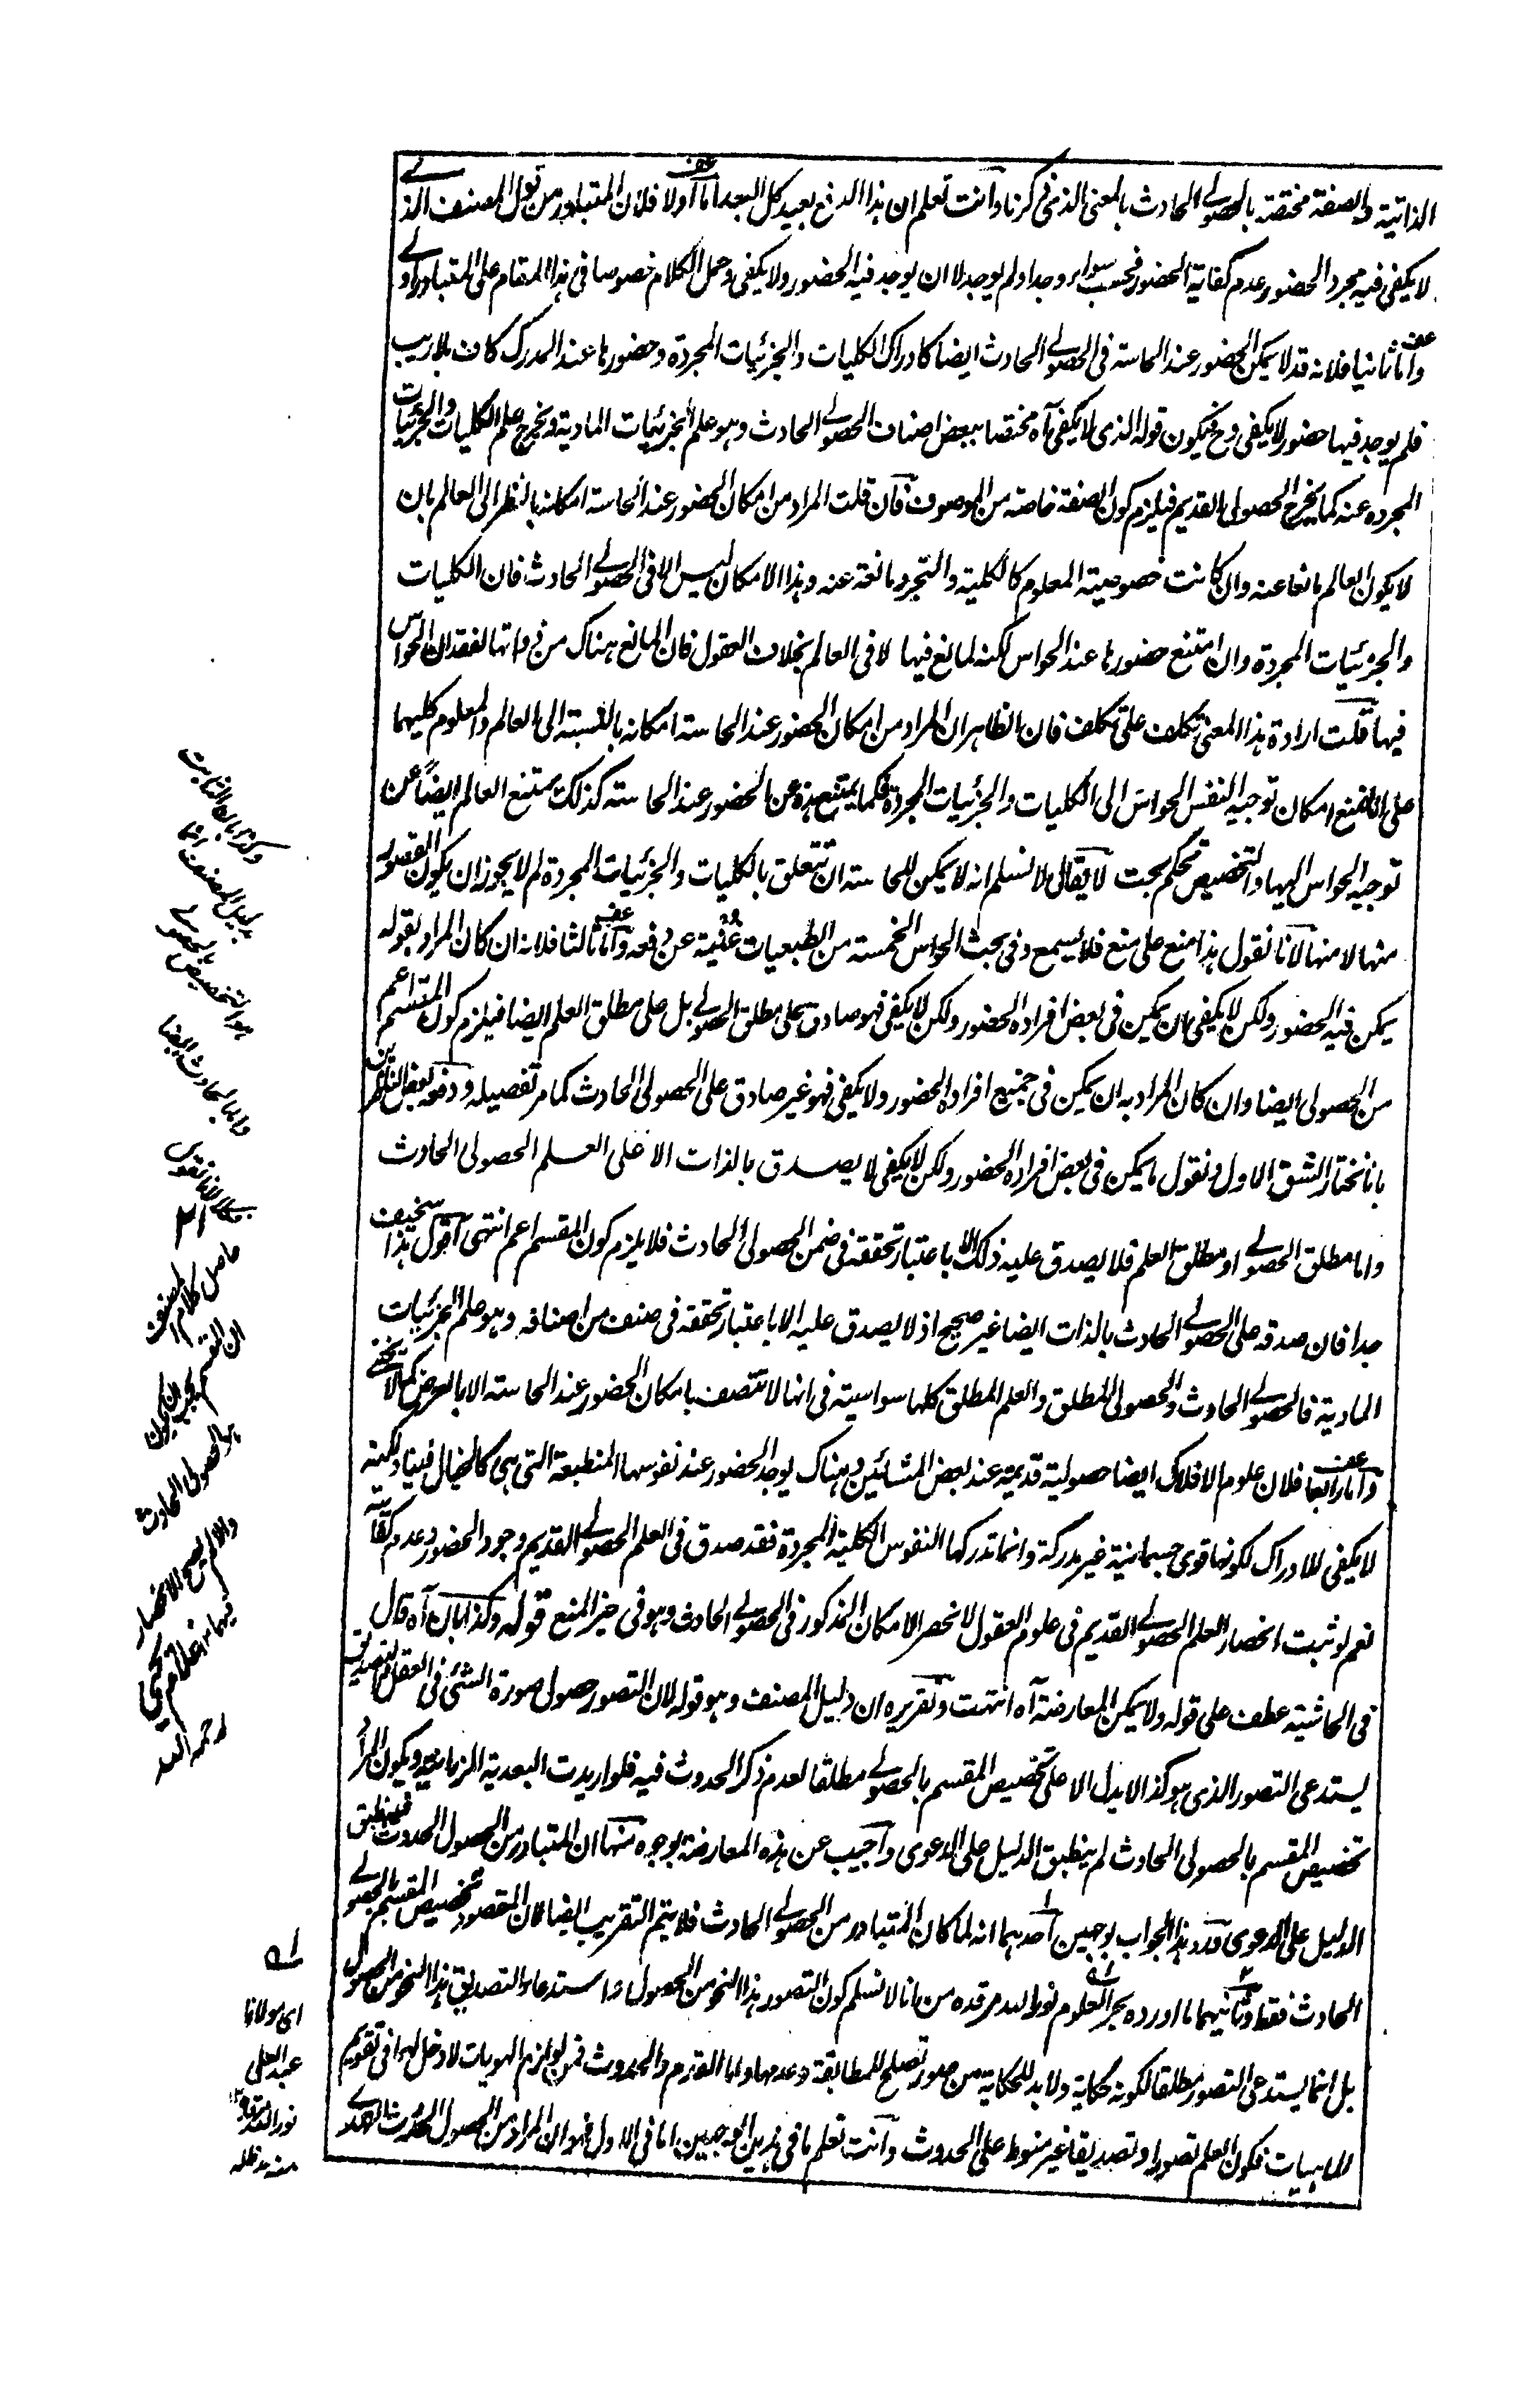 الذاتية والصفة مختصة بالحصولى الحادث بالمعنى الذى ذكرنا وانت تعلم ان هذا الدفع بعيد كل البعد اما اولا فلان المتبادر من قول المصنف الذى
لا يكفى فيه مجرد الحضور عدم كفاية الحضور فحسب سواء وجد او لم يوجد لا ان يوجد فيه الحضور ولا يكفى وحمل الكلام خصوصا فى هذا المقام على المتبادر اولى
واما ثانيا فلانه قد لا يمكن الحضور عند الحاسة فى الحصولى الحادث ايضا كادراك الكليات والجزئيات المجردة وحضورها عند المدرك كاف بلا ريب
فلم يوجد فيها حضور لا يكفى وح فيكون قوله الذى لا يكفى آه مختصا ببعض اصناف الحصولى الحادث وهو علم الجزئيات المادية ويخرج علم الكليات والجزئيات
المجردة عنه كما يخرج الحصولى القديم فيلزم كون الصفة خاصة من الموصوف فان قلت المراد من امكان الحضور عند الحاسة امكانه بالنظر الى العالم بان
لا يكون العالم مانعا عنه وان كانت خصوصية المعلوم كالكلية والتجرد مانعة عنه وهذا الامكان ليس الا فى الحصولى الحادث فان الكليات
والجزئيات المجردة وان امتنع حضورها عند الحواس لكنه لمانع فيها لا فى العالم بخلاف العقول فان المانع هناك من ذواتها لفقدان الحواس
فيها قلت ارادة هذا المعنى تكلف على تكلف فان الظاهر ان المراد من امكان الحضور عند الحاسة امكانه بالنسبة الى العالم والمعلوم كليهما
على انا نمنع امكان توجيه النفس الحواس الى الكليات والجزئيات المجردة فكما يمتنع هذه عن الحضور عند الحاسة كذلك يمتنع العالم ايضا عن
توجيه الحواس اليها والتخصيص تحكم بحت لا يقال لا نسلم انه لا يمكن للحاسة ان تتعلق بالكليات والجزئيات المجردة لم لا يجوز ان يكون القصور
منها لا منها لانا نقول هذا منع على منع فلا يسمع وفى بحث الحواس الخمسة من الطبعيات غنية عن دفعه واما ثالثا فلانه ان كان المراد بقوله
يمكن فيه الحضور ولكن لا يكفى ان يمكن فى بعض افراده الحضور ولكن لا يكفى فهو صادق على مطلق الحصولى بل على مطلق العلم ايضا فيلزم كون المقسم اعم
من الحصولى ايضا وان كان المراد به ان يمكن فى جميع افراده الحضور ولا يكفى فهو غير صادق على الحصولى الحادث كما مر تفصيله ودفعه بعض الناظرين
بانا نختار الشق الاول ونقول ما يمكن فى بعض افراده الحضور ولكن لا يكفى لا يصدق بالذات الا على العلم الحصولى الحادث
واما مطلق الحصولى او مطلق العلم فلا يصدق عليه ذلك الا باعتبار تحققه فى ضمن الحصولى الحادث فلا يلزم كون المقسم اعم انتهى اقول هذا سخيف
جدا فان صدقه على الحصولى الحادث بالذات ايضا غير صحيح اذ لا يصدق عليه الا باعتبار تحققه فى صنف من اصنافه وهو علم الجزئيات
المادية فالحصولى الحادث والحصولى المطلق والعلم المطلق كلها سواسية فى انها لا تتصف بامكان الحضور عند الحاسة الا بالعرض كما لا يخفى
واما رابعا فلان علوم الافلاك ايضا حصولية قديمة عند بعض المشائين وهناك يوجد الحضور عند نفوسها المنطبعة التى هى كالخيال فينا ولكنه
لا يكفى للادراك لكونها قوى جسمانية غير مدركة وانما تدركها النفوس الكلية المجردة فقد صدق فى العلم الحصولى القديم وجود الحضور وعدم كفايته
نعم لو ثبت انحصار العلم الحصولى القديم فى علوم العقول لانحصر الامكان المذكور فى الحصولى الحادث وهو فى حيز المنع قوله وكذا ابان آه قال
فى الحاشية عطف على قوله ولا يمكن المعارضة آه انتهت وتقريره ان دليل المصنف وهو قوله لان التصور حصول صورة الشئ فى العقل والتصديق
يستدعى التصور الذى هو كذا لا يدل الا على تخصيص المقسم بالحصولى مطلقا لعدم ذكر الحدوث فيه فلو اريدت البعدية الزمانية ويكون المراد
تخصيص المقسم بالحصولى الحادث لم ينطبق الدليل على الدعوى واجيب عن هذه المعارضة بوجوه منها ان المتبادر من الحصول الحدوث فينطبق
الدليل على الدعوى ورد هذا الجواب بوجهين احدهما انه لما كان المتبادر من الحصولى الحادث فلا يتم التقريب ايضا لان المقصود تخصيص المقسم بالحصولى
الحادث فقط وثانيهما ما اورده بحر العلوم نور الله مرقده من انا لا نسلم كون التصور هذا النحو من الحصول واستدعاء التصديق هذا النحو من الحصول
بل انما يستدعى التصور مطلقا لكونه حكاية ولا بد للحكاية من صور تصلح للمطابقة وعدمها واما القدم والحدوث فمن لوازم الهويات لا دخل لها فى تقويم
الماهيات فكون العلم تصورا وتصديقا غير منوط على الحدوث وانت تعلم ما فى هذين الوجهين اما فى الاول فهو ان المراد من الحصول الحدوث
حاصل كلام المصنف
ان المقسم يجب ان يكون
هو الحصولى الحادث
والا لم يصح الانحصار
فيهما غلام يحيى
رحمه الله
اى مولانا
عبد العلى
نور الله مرقده
منه مد ظله